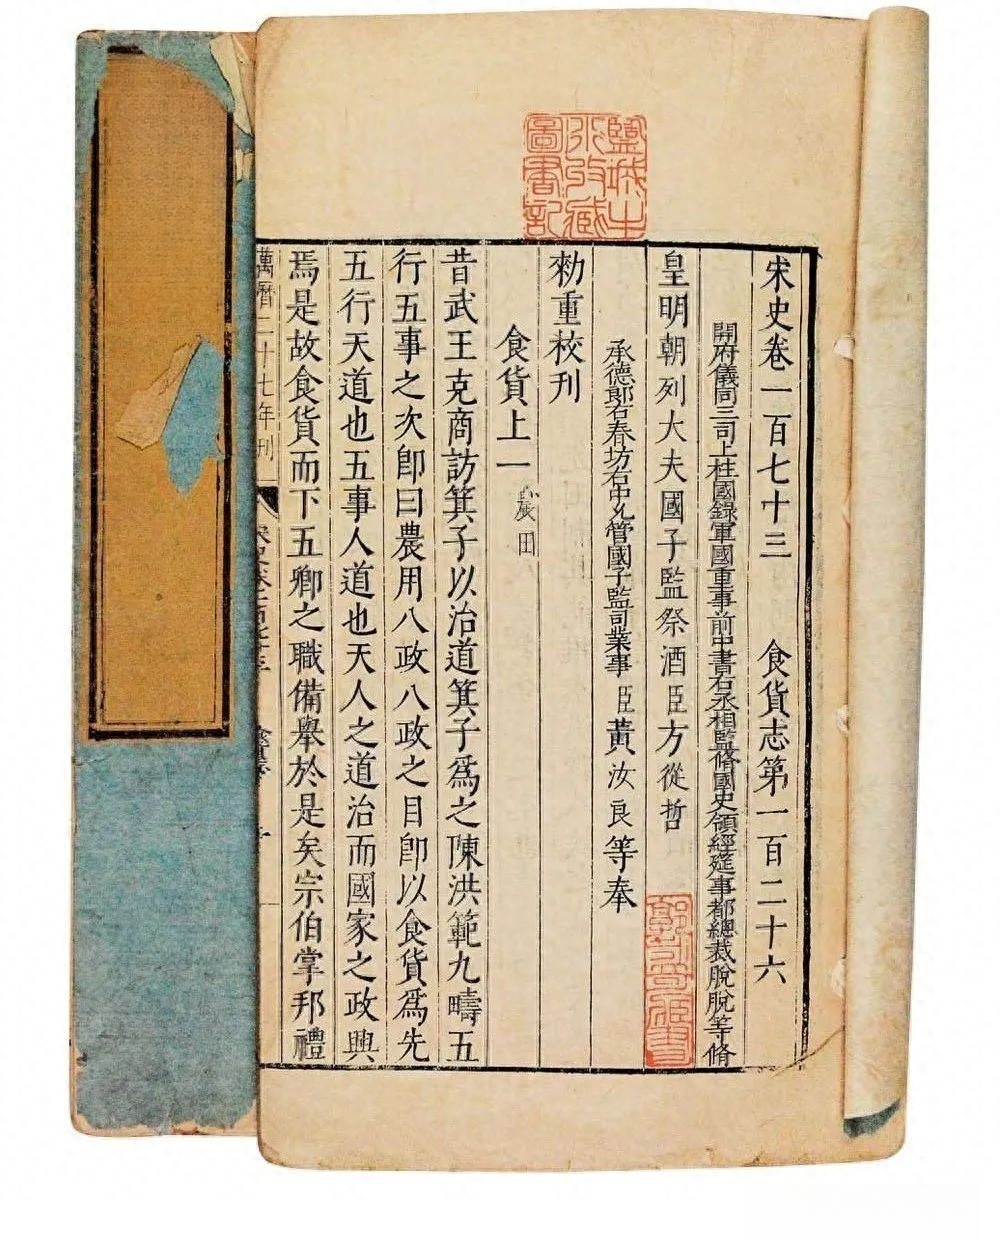 宋史卷一百七十三　食貨志第一百二十六
開府儀同三司上柱國錄軍國重事前中書右丞相監脩國史領經筵事都總裁脫脫等脩
皇明朝列大夫國子監祭酒臣方從哲
承德郎右春坊右中允管國子監司業事臣黃汝良等奉
勑重挍刊
食貨上一 農田
昔武王克商訪箕子以治道箕子爲之陳洪範九疇五
行五事之次卽曰農用八政八政之目卽以食貨爲先
五行天道也五事人道也天人之道治而國家之政興
焉是故食貨而下五卿之職備舉於是矣宗伯掌邦禮
萬曆二十七年刊
宋史卷一百七十三
鹽城牛
收藏
圖書記